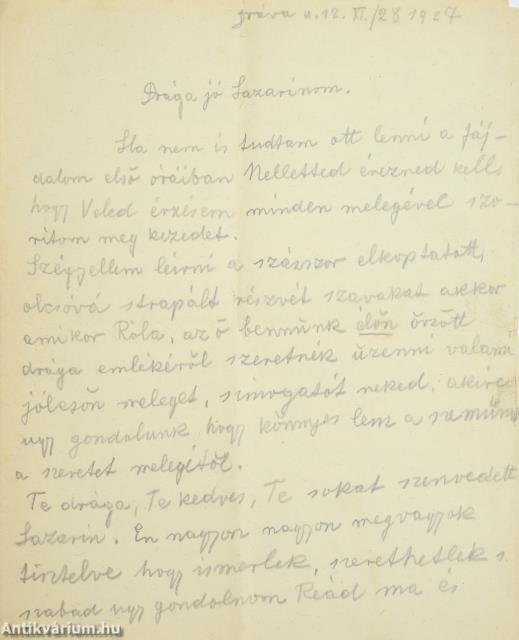 u. 12. XI./28 1927
Drága jó Lazarinom.
Ha nem is tudtam ott lenni a fáj-
dalom első óráiban Melletted érezned kell,
hogy Veled érzésem minden melegével szo-
ritom meg kezedet.
Szégyellem leirni a százszor elkoptatott,
olcsóvá strapált részvét szavakat akkor
amikor Róla, az ő bennünk élőn őrzött
drága emlékéről szeretnék üzenni valami
jóleső meleget, simogatót neked, akiről
ugy gondolunk hogy könnyes lesz a szemünk
a szeretet melegétől.
Te drága, Te kedves, Te sokat szenvedett
Lazarin. Én nagyon nagyon megvagyok
tisztelve hogy ismerlek, szerethetlek s
szabad ugy gondolnom Reád ma és
Antikvárium.hu
www.antikvarium.hu